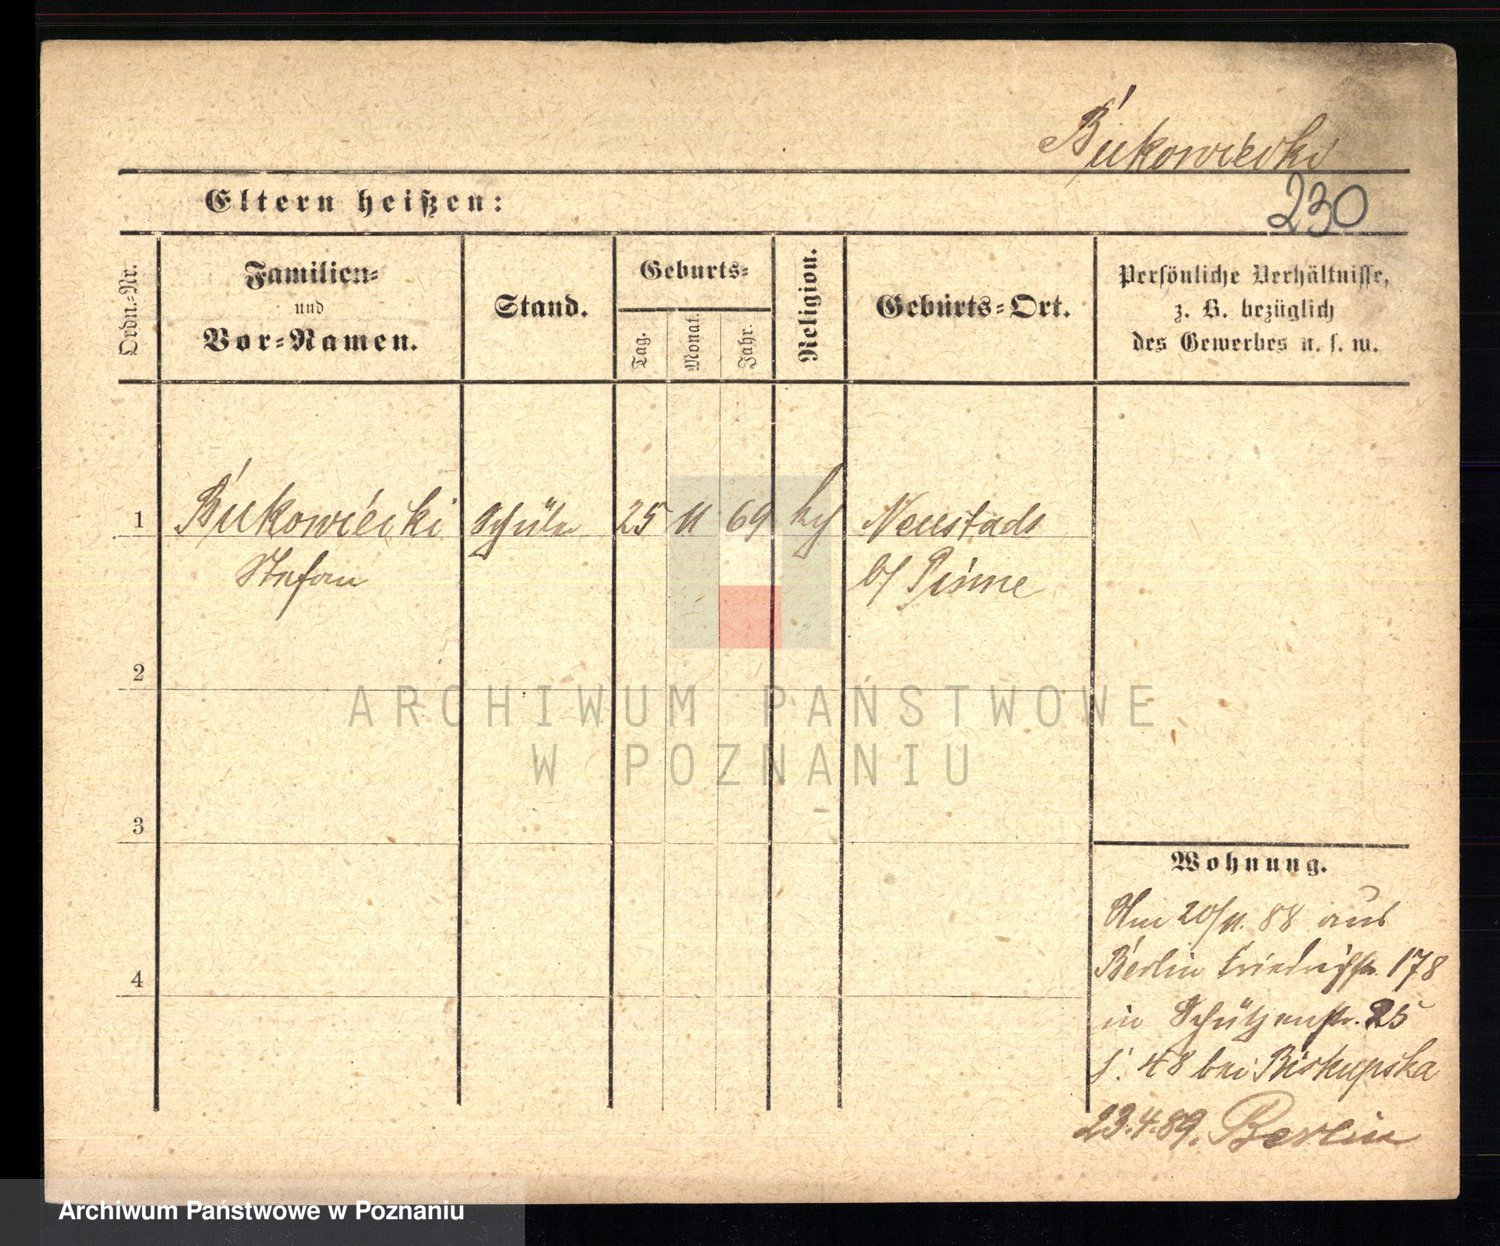 Bukowiecki
Eltern heißen:
230
Ordn.-Nr.
Familien-
und
Vor-Namen.
Stand.
Geburts-
Tag.
Monat.
Jahr.
Religion.
Geburts-Ort.
Persönliche Verhältnisse,
z. B. bezüglich
des Gewerbes u. s. w.
1
Bukowiecki
Stefan
Schüler
25
11
69
Neustadt
b/ Pinne
2
3
4
Wohnung.
Am 20/11. 88 aus
Berlin Friedrichstr. 178
in Schützenstr. 25
j. 48 bei Biskupska
23.4.89. Berlin
ARCHIWUM PAŃSTWOWE
W POZNANIU
Archiwum Państwowe w Poznaniu